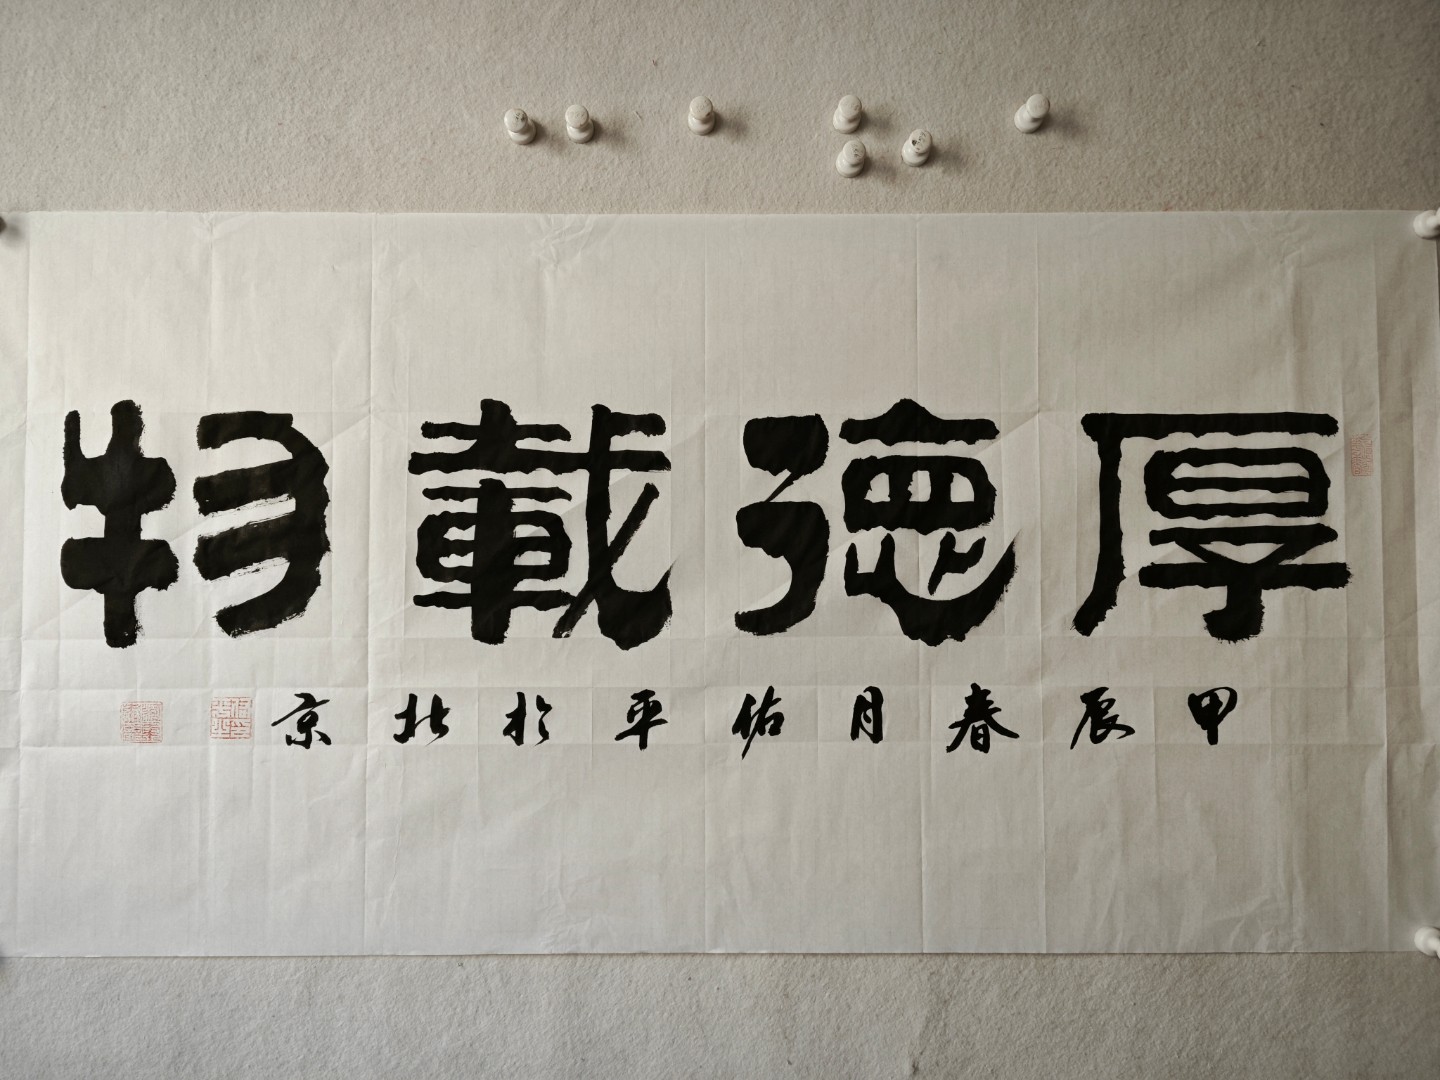 厚德載物
甲辰春月佑平於北京